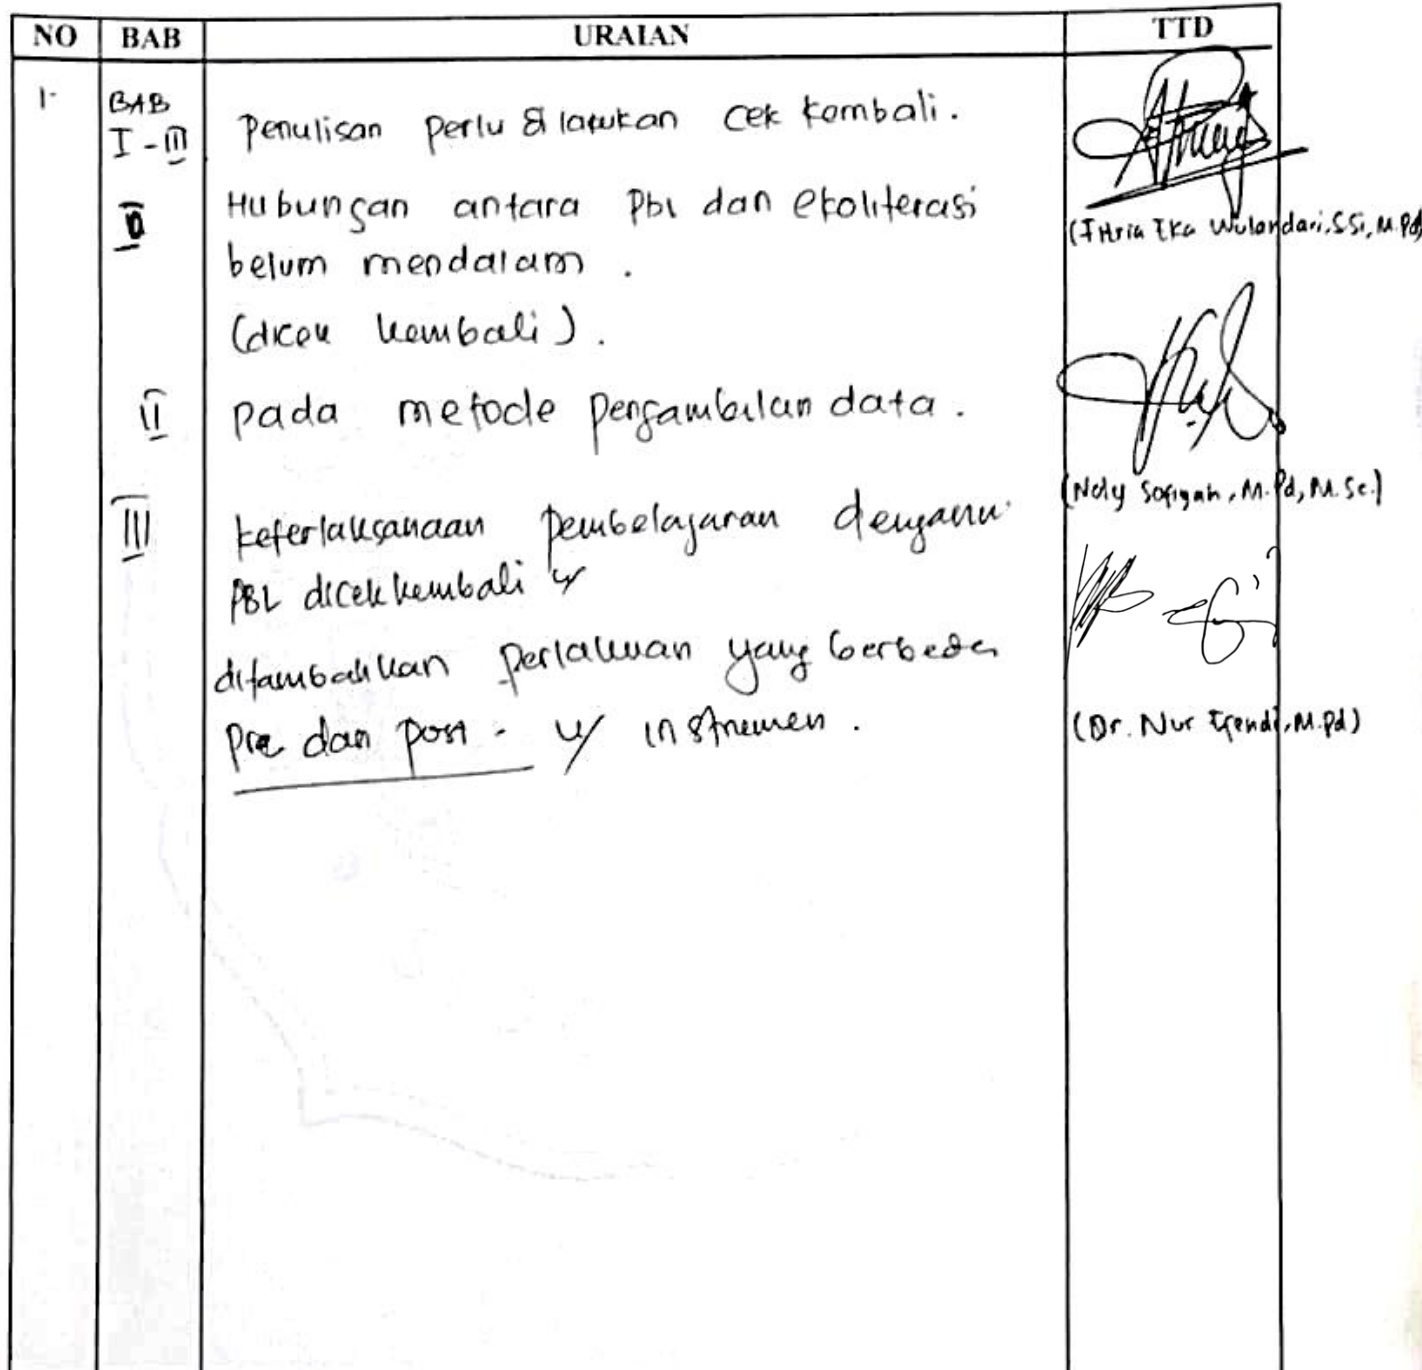 NO BAB URAIAN TTD
1. BAB I - III Penulisan perlu dilakukan cek kembali.
II Hubungan antara Pbl dan ekoliterasi
belum mendalam.
(Fitria Eka Wulandari, S.Si, M.Pd)
(dicek kembali).
II pada metode pengambilan data.
(Noly Sofiyah, M.Pd, M.Sc.)
III keterlaksanaan pembelajaran dengan
PBL dicek kembali
ditambahkan perlakuan yang berbeda
Pre dan post - u/ instrumen.
(Dr. Nur Efendi, M.Pd)